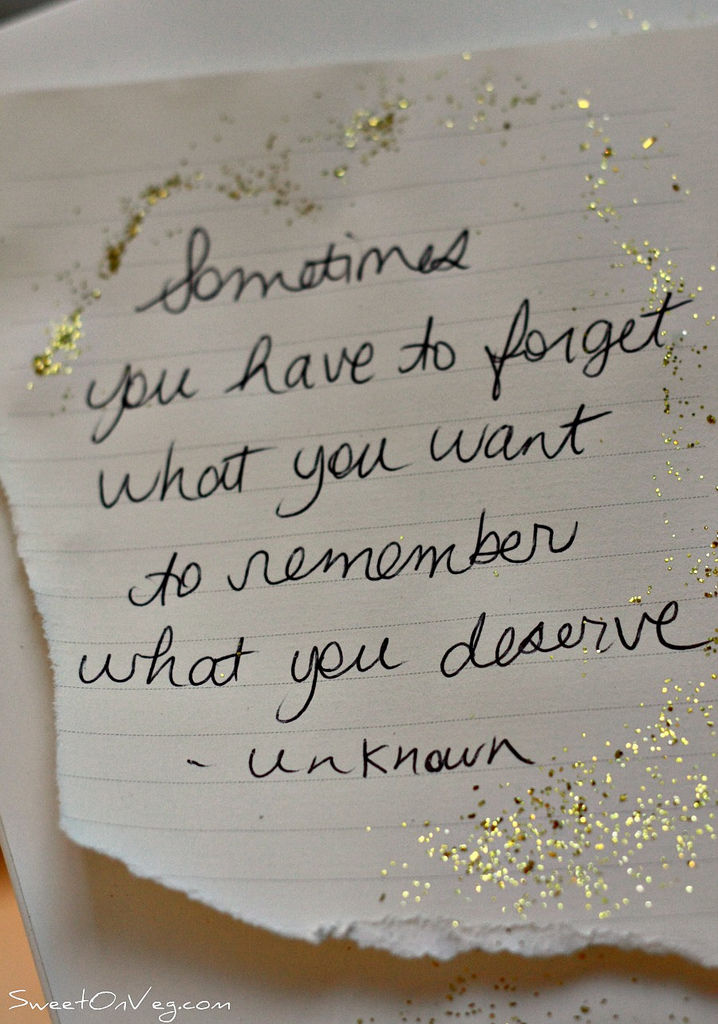 Sometimes
you have to forget
what you want
to remember
what you deserve
- unknown
SweetOnVeg.com